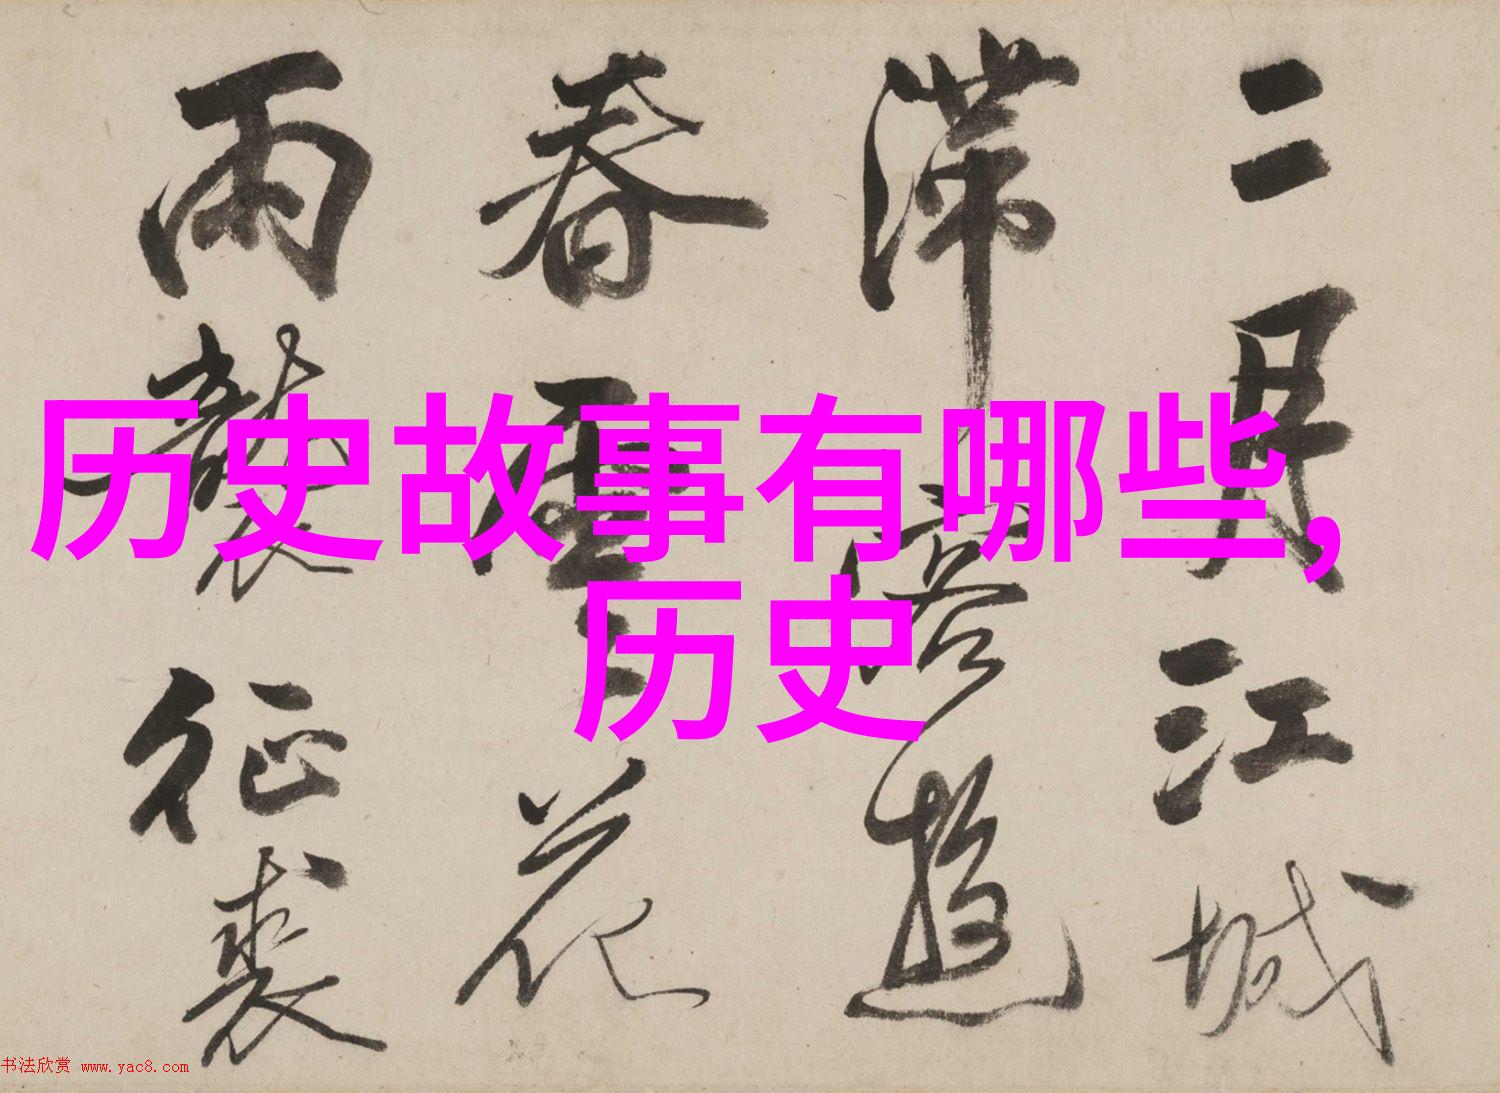 历史故事有哪些,
历史
二月江城
滞客遊
春花
雨襲征裘
书法欣赏 www.yac8.com